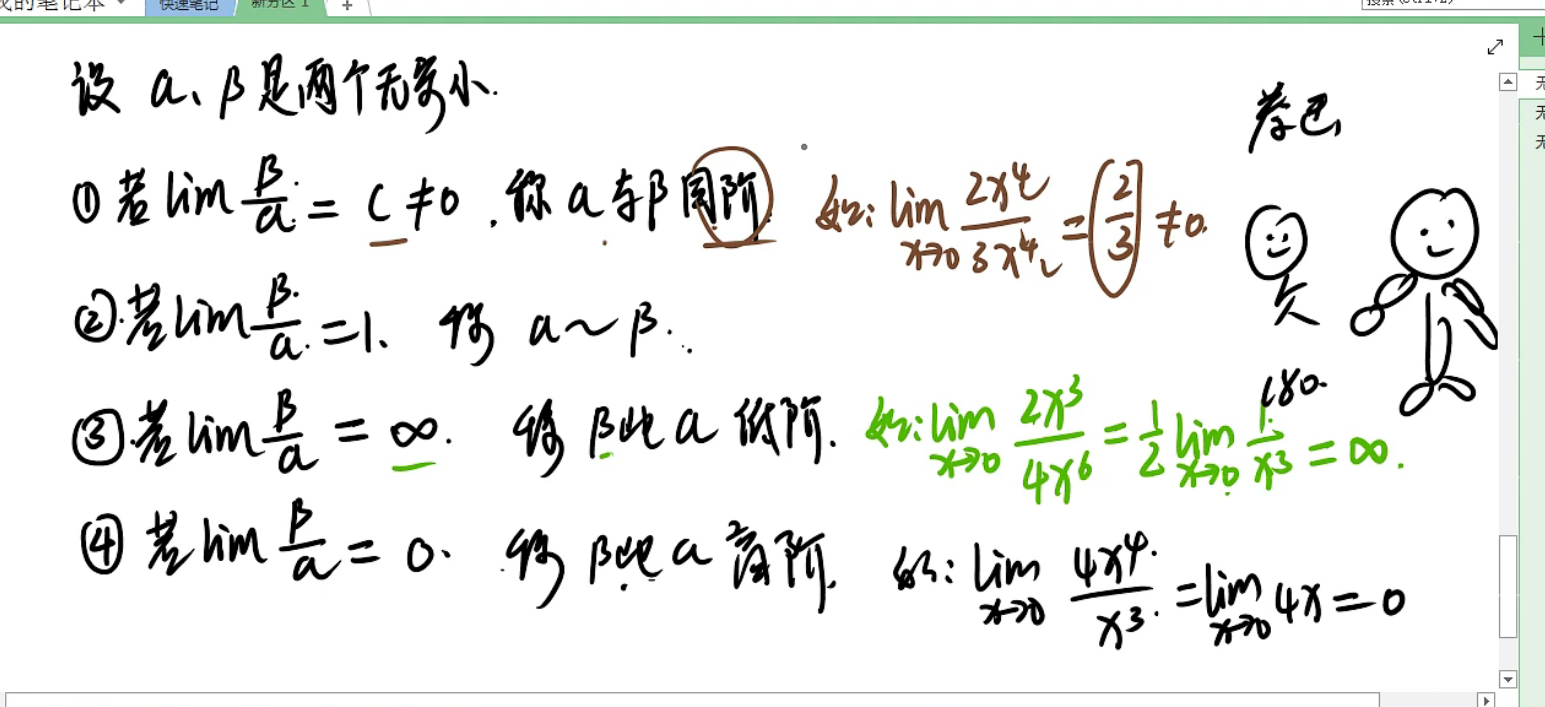 我的笔记本 快速笔记 新分区 1 +
设 α、β是两个无穷小.
① 若 lim β/α = C ≠ 0 , 称 α 与 β 同阶. 如: lim x→0 2x⁴/3x⁴ = 2/3 ≠ 0.
② 若 lim β/α = 1. 称 α ~ β.
180.
③ 若 lim β/α = ∞. 称 β比 α 低阶. 如: lim x→0 2x³/4x⁶ = 1/2 lim x→0 1/x³ = ∞.
④ 若 lim β/α = 0. 称 β比 α 高阶. 如: lim x→0 4x⁴/x³ = lim x→0 4x = 0